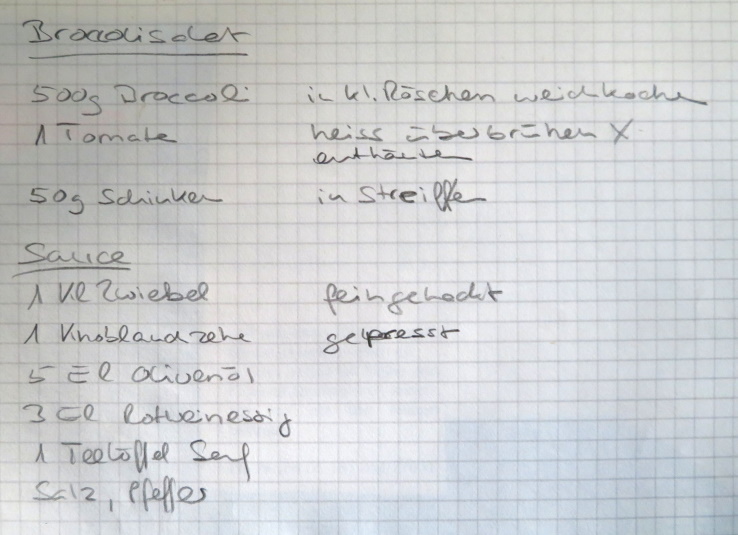 Broccolisalat
500g Broccoli in kl. Röschen weichkochen
1 Tomate heiss überbrühen X
enthäuten
50g Schinken in Streiffen
Sauce
1 kl Zwiebel feingehackt
1 Knoblauchzehe gepresst
5 El Olivenöl
3 El Rotweinessig
1 Teelöffel Senf
Salz, Pfeffer